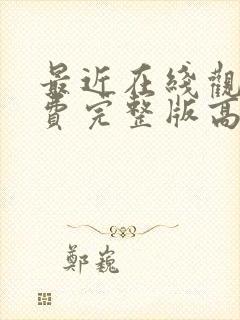 最近在线觀
費完整版高
鄭巍